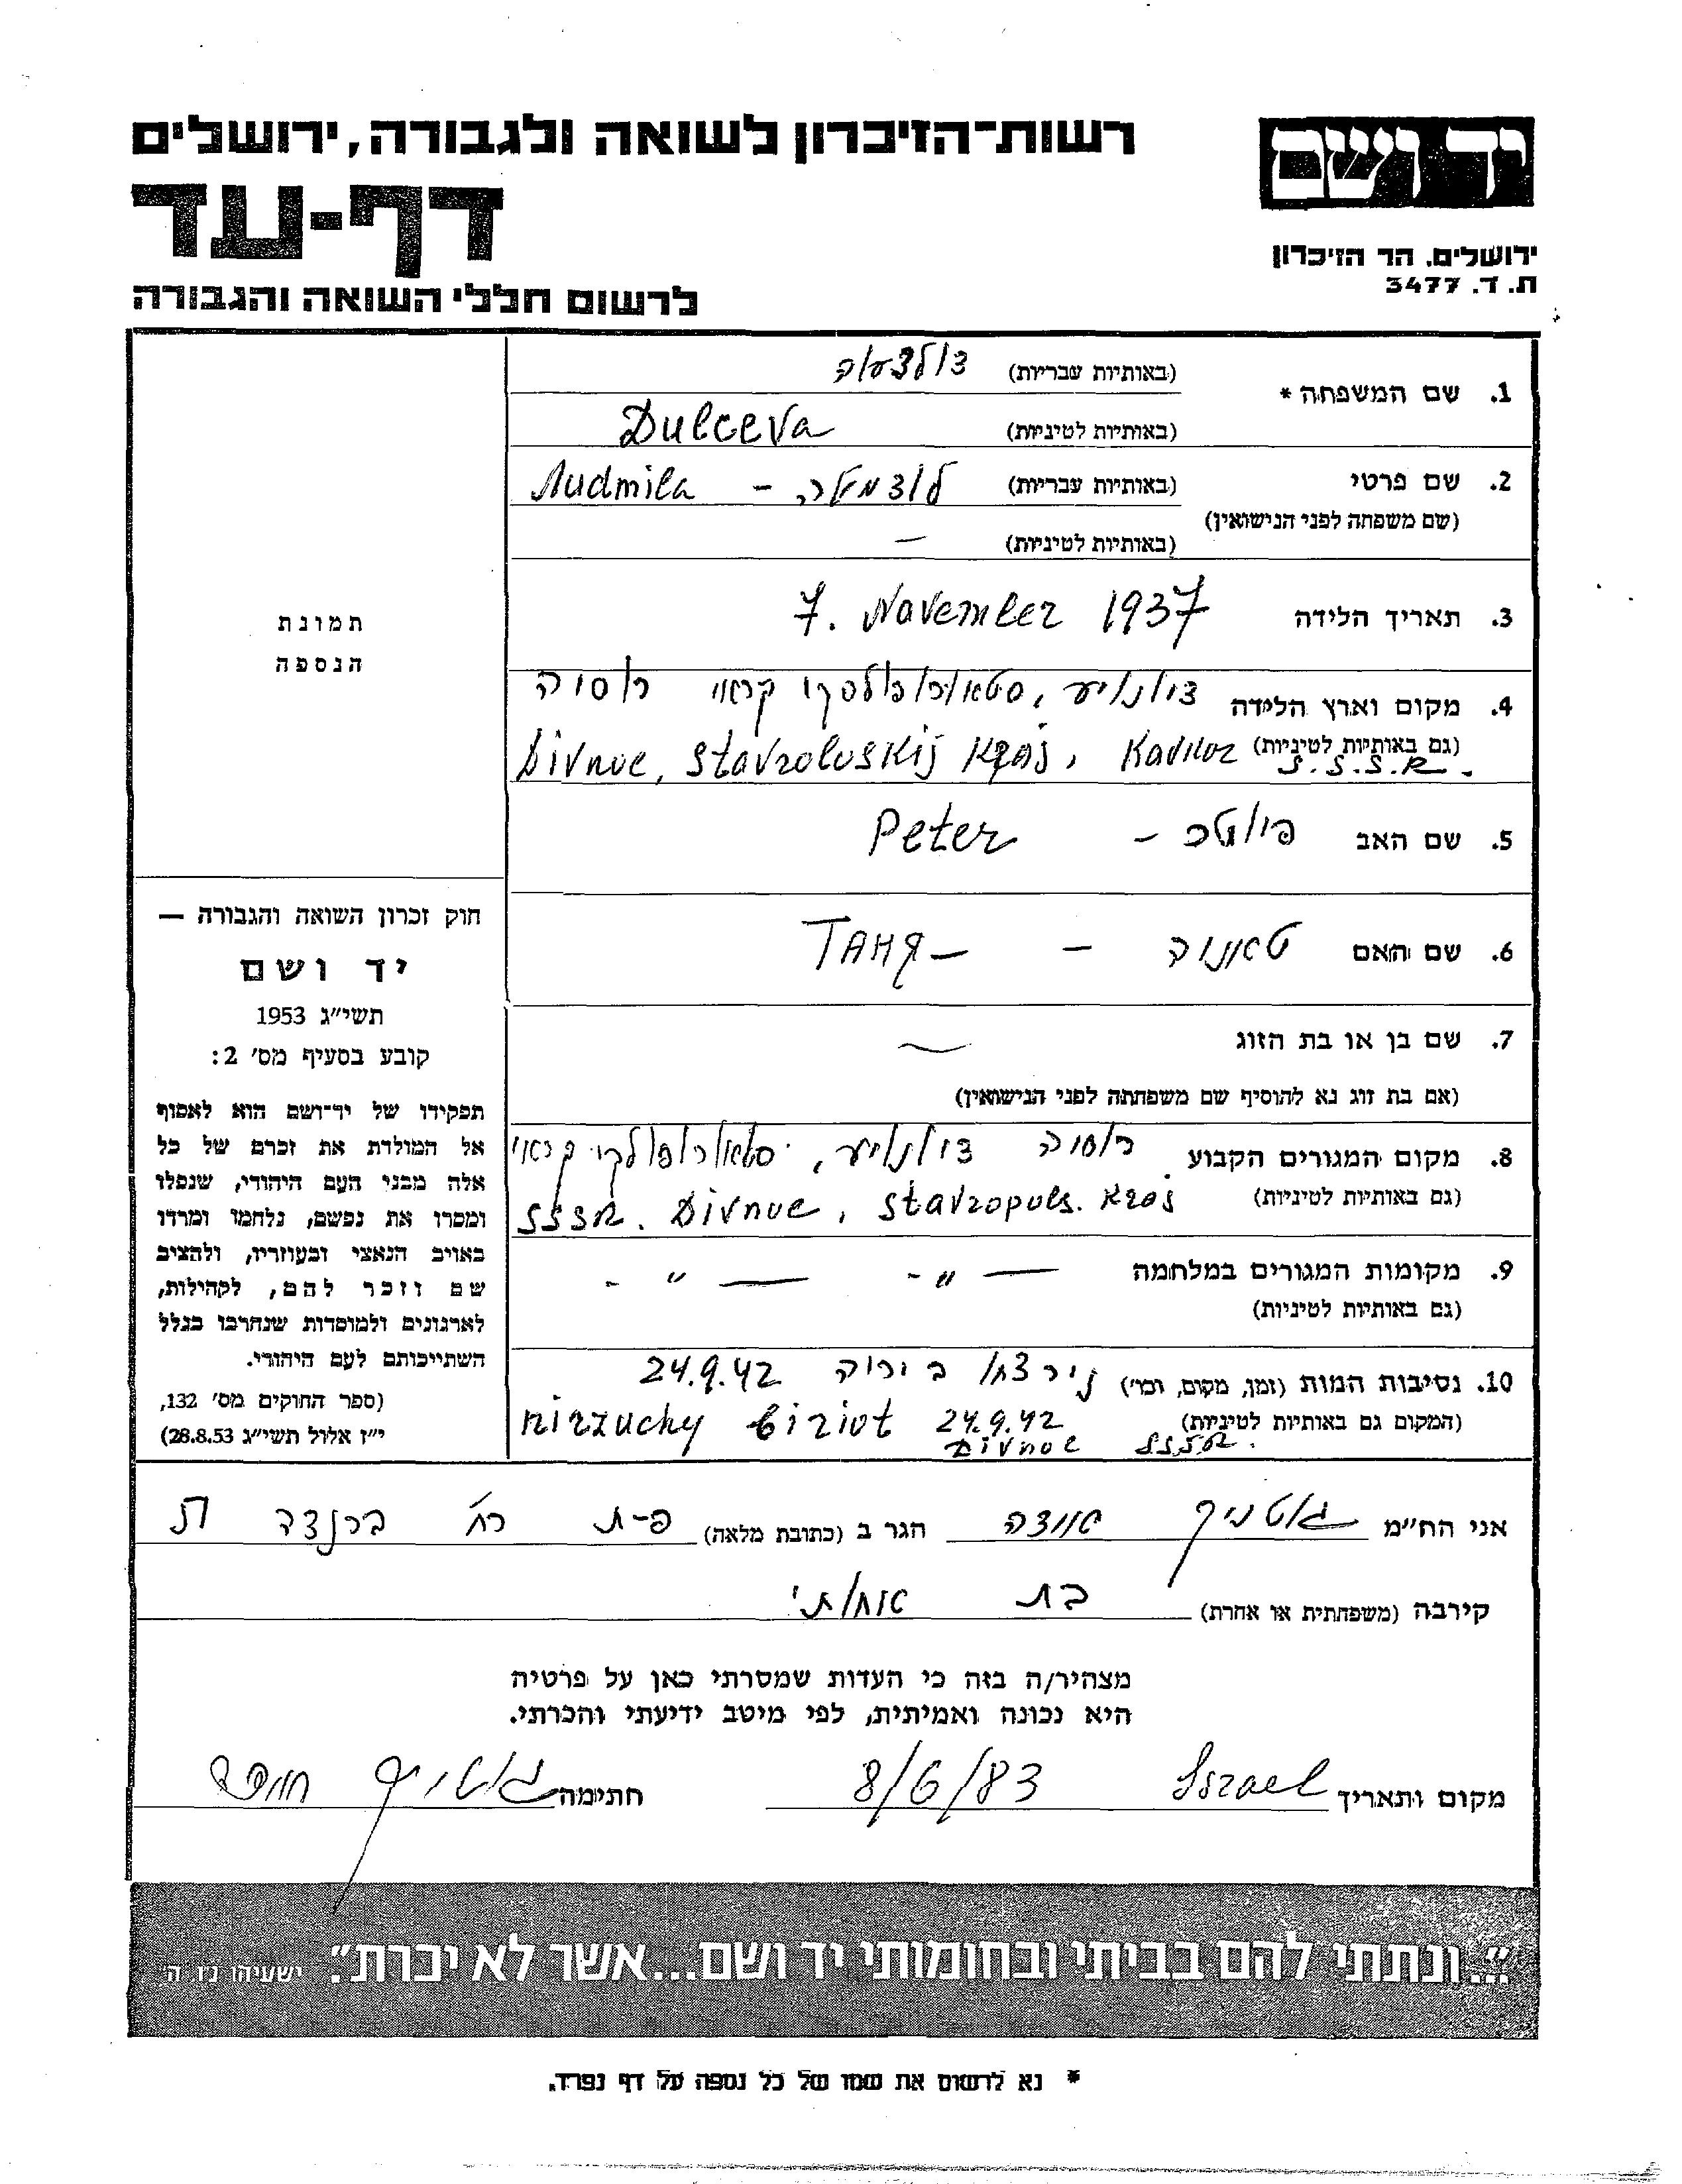 רשות־הזיכרון לשואה ולגבורה, ירושלים
דף-עד
לרשום חללי השואה והגבורה
יד ושם
ירושלים, הר הזיכרון
ת. ד. 3477
1. שם המשפחה *
(באותיות עבריות)
(באותיות לטיניות) Dulceva
2. שם פרטי
(שם משפחה לפני הנישואין)
(באותיות עבריות) - Ludmila
(באותיות לטיניות) —
3. תאריך הלידה 7. November 1937
4. מקום וארץ הלידה רוסיה
(גם באותיות לטיניות) Divnoe, Kavkaz
S.S.S.R.
5. שם האב - Peter
6. שם האם טאניה - ТАНЯ -
7. שם בן או בת הזוג
(אם בת זוג נא להוסיף שם משפחתה לפני הנישואין)
8. מקום המגורים הקבוע רוסיה
(גם באותיות לטיניות) SSSR. Divnoe, Stavropols. Kraj
9. מקומות המגורים במלחמה — " - — " -
(גם באותיות לטיניות)
10. נסיבות המות (זמן, מקום, וכו') ביריה 24.9.42
(המקום גם באותיות לטיניות) 24.9.42
Divnoe SSSR.
תמונת
הנספה
חוק זכרון השואה והגבורה —
יד ושם
תשי״ג 1953
קובע בסעיף מס' 2:
תפקידו של יד־ושם הוא לאסוף
אל המולדת את זכרם של כל
אלה מבני העם היהודי, שנפלו
ומסרו את נפשם, נלחמו ומרדו
באויב הנאצי ובעוזריו, ולהציב
שם וזכר להם, לקהילות,
לארגונים ולמוסדות שנחרבו בגלל
השתייכותם לעם היהודי.
(ספר החוקים מס' 132,
י״ז אלול תשי״ג 28.8.53)
אני הח״מ גוטניק הגר ב (כתובת מלאה) פ-ת רח'
קירבה (משפחתית או אחרת) בת אחותי
מצהיר/ה בזה כי העדות שמסרתי כאן על פרטיה
היא נכונה ואמיתית, לפי מיטב ידיעתי והכרתי.
מקום ותאריך Israel 8/6/83 חתימה
"...ונתתי להם בביתי ובחומותי יד ושם...אשר לא יכרת". ישעיהו נ״ו ה'
* נא לרשום את שמו של כל נספה על דף נפרד.